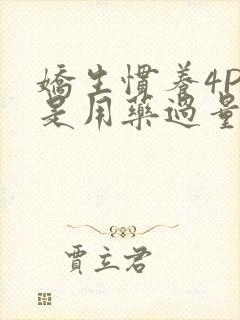 嬌生慣養4P
是用藥過量
賈立君